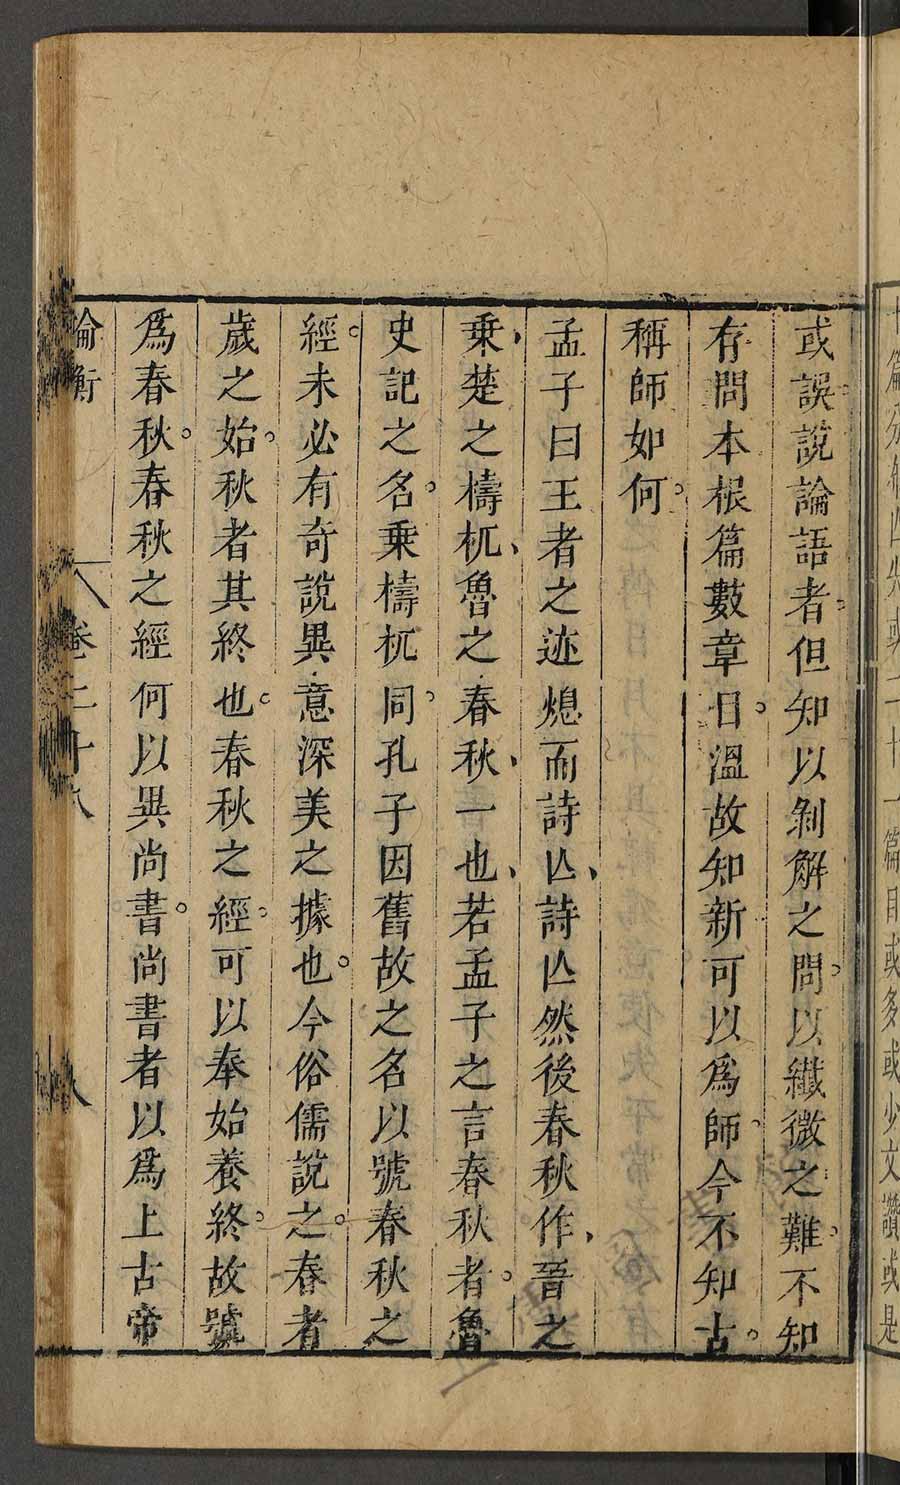 或誤說論語者但知以剝解之問以纖微之難不知
存問本根篇數章目溫故知新可以爲師今不知古
稱師如何
孟子曰王者之迹熄而詩亾詩亾然後春秋作晉之
乗楚之檮杌魯之春秋一也若孟子之言春秋者魯
史記之名乗檮杌同孔子因舊故之名以號春秋之
經未必有奇說異意深美之據也今俗儒說之春者
歲之始秋者其終也春秋之經可以奉始養終故號
爲春秋春秋之經何以異尚書尚書者以爲上古帝
論衡 卷二十八 八